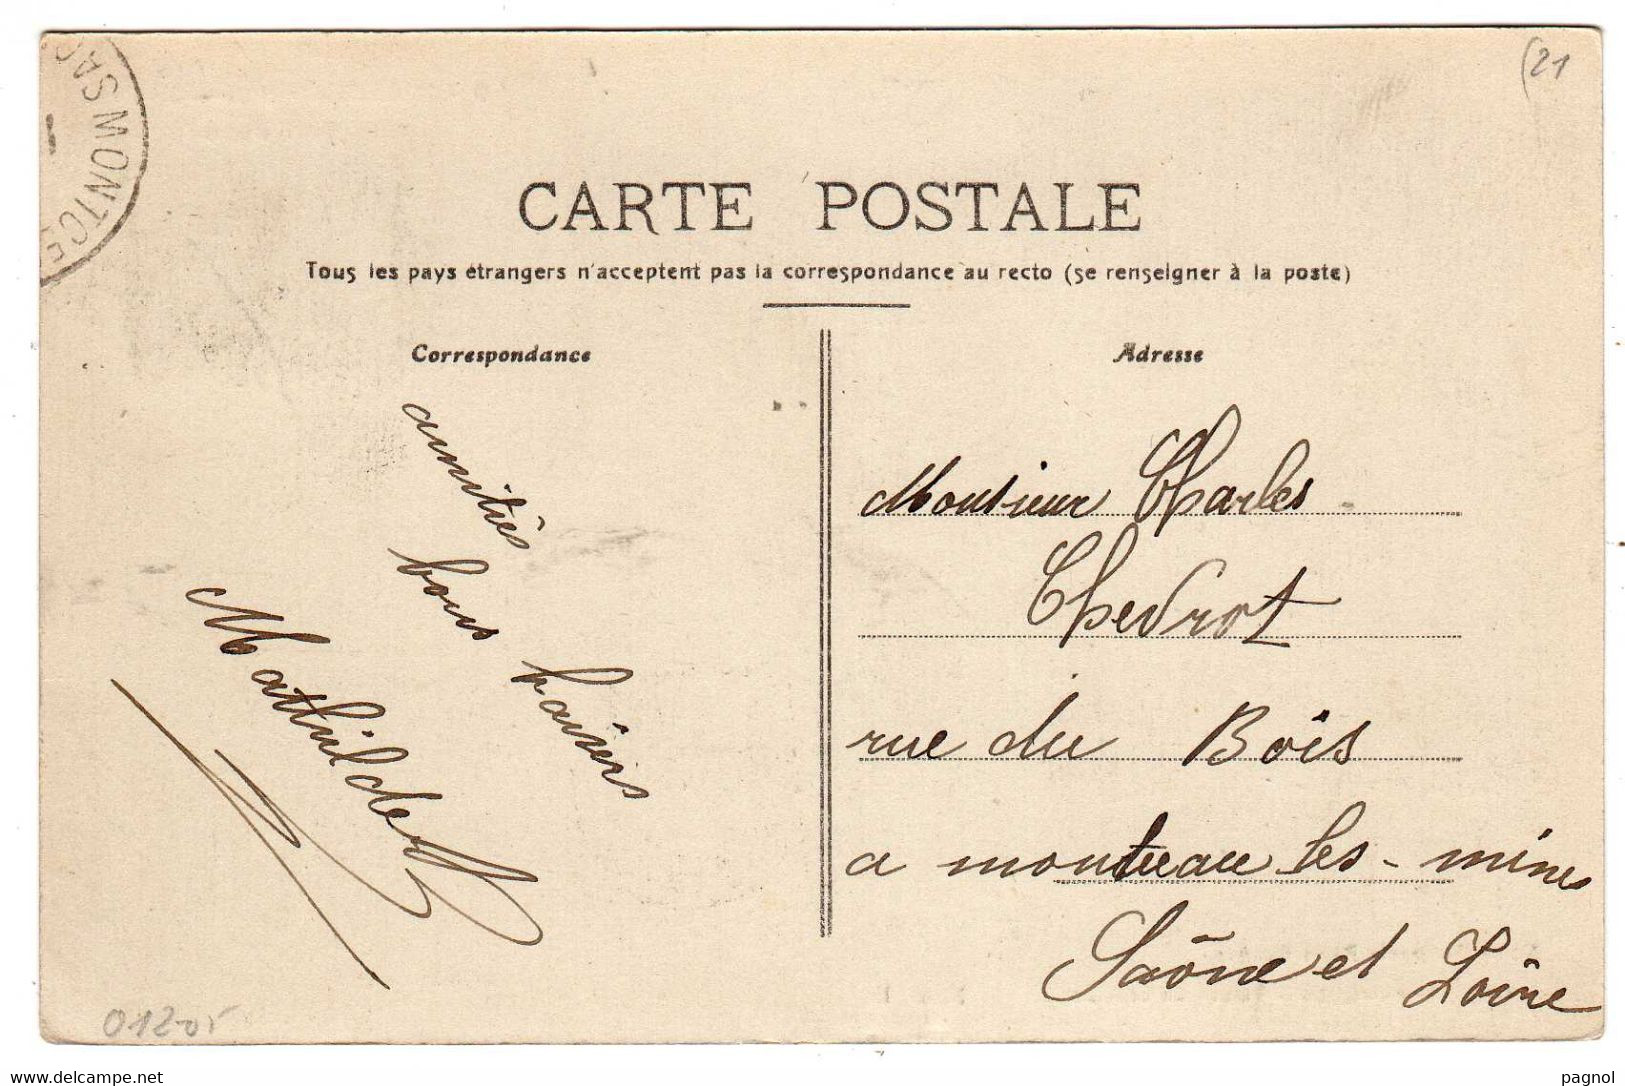 (21
SAO
MONTCE
CARTE POSTALE
Tous les pays étrangers n'acceptent pas la correspondance au recto (se renseigner à la poste)
Correspondance
amitiès
bons baisers
Mathilde
Adresse
Monsieur Charles
Chevrot
rue du Bois
a montceau les-mines
Saône et Loire
01205
www.delcampe.net
pagnol